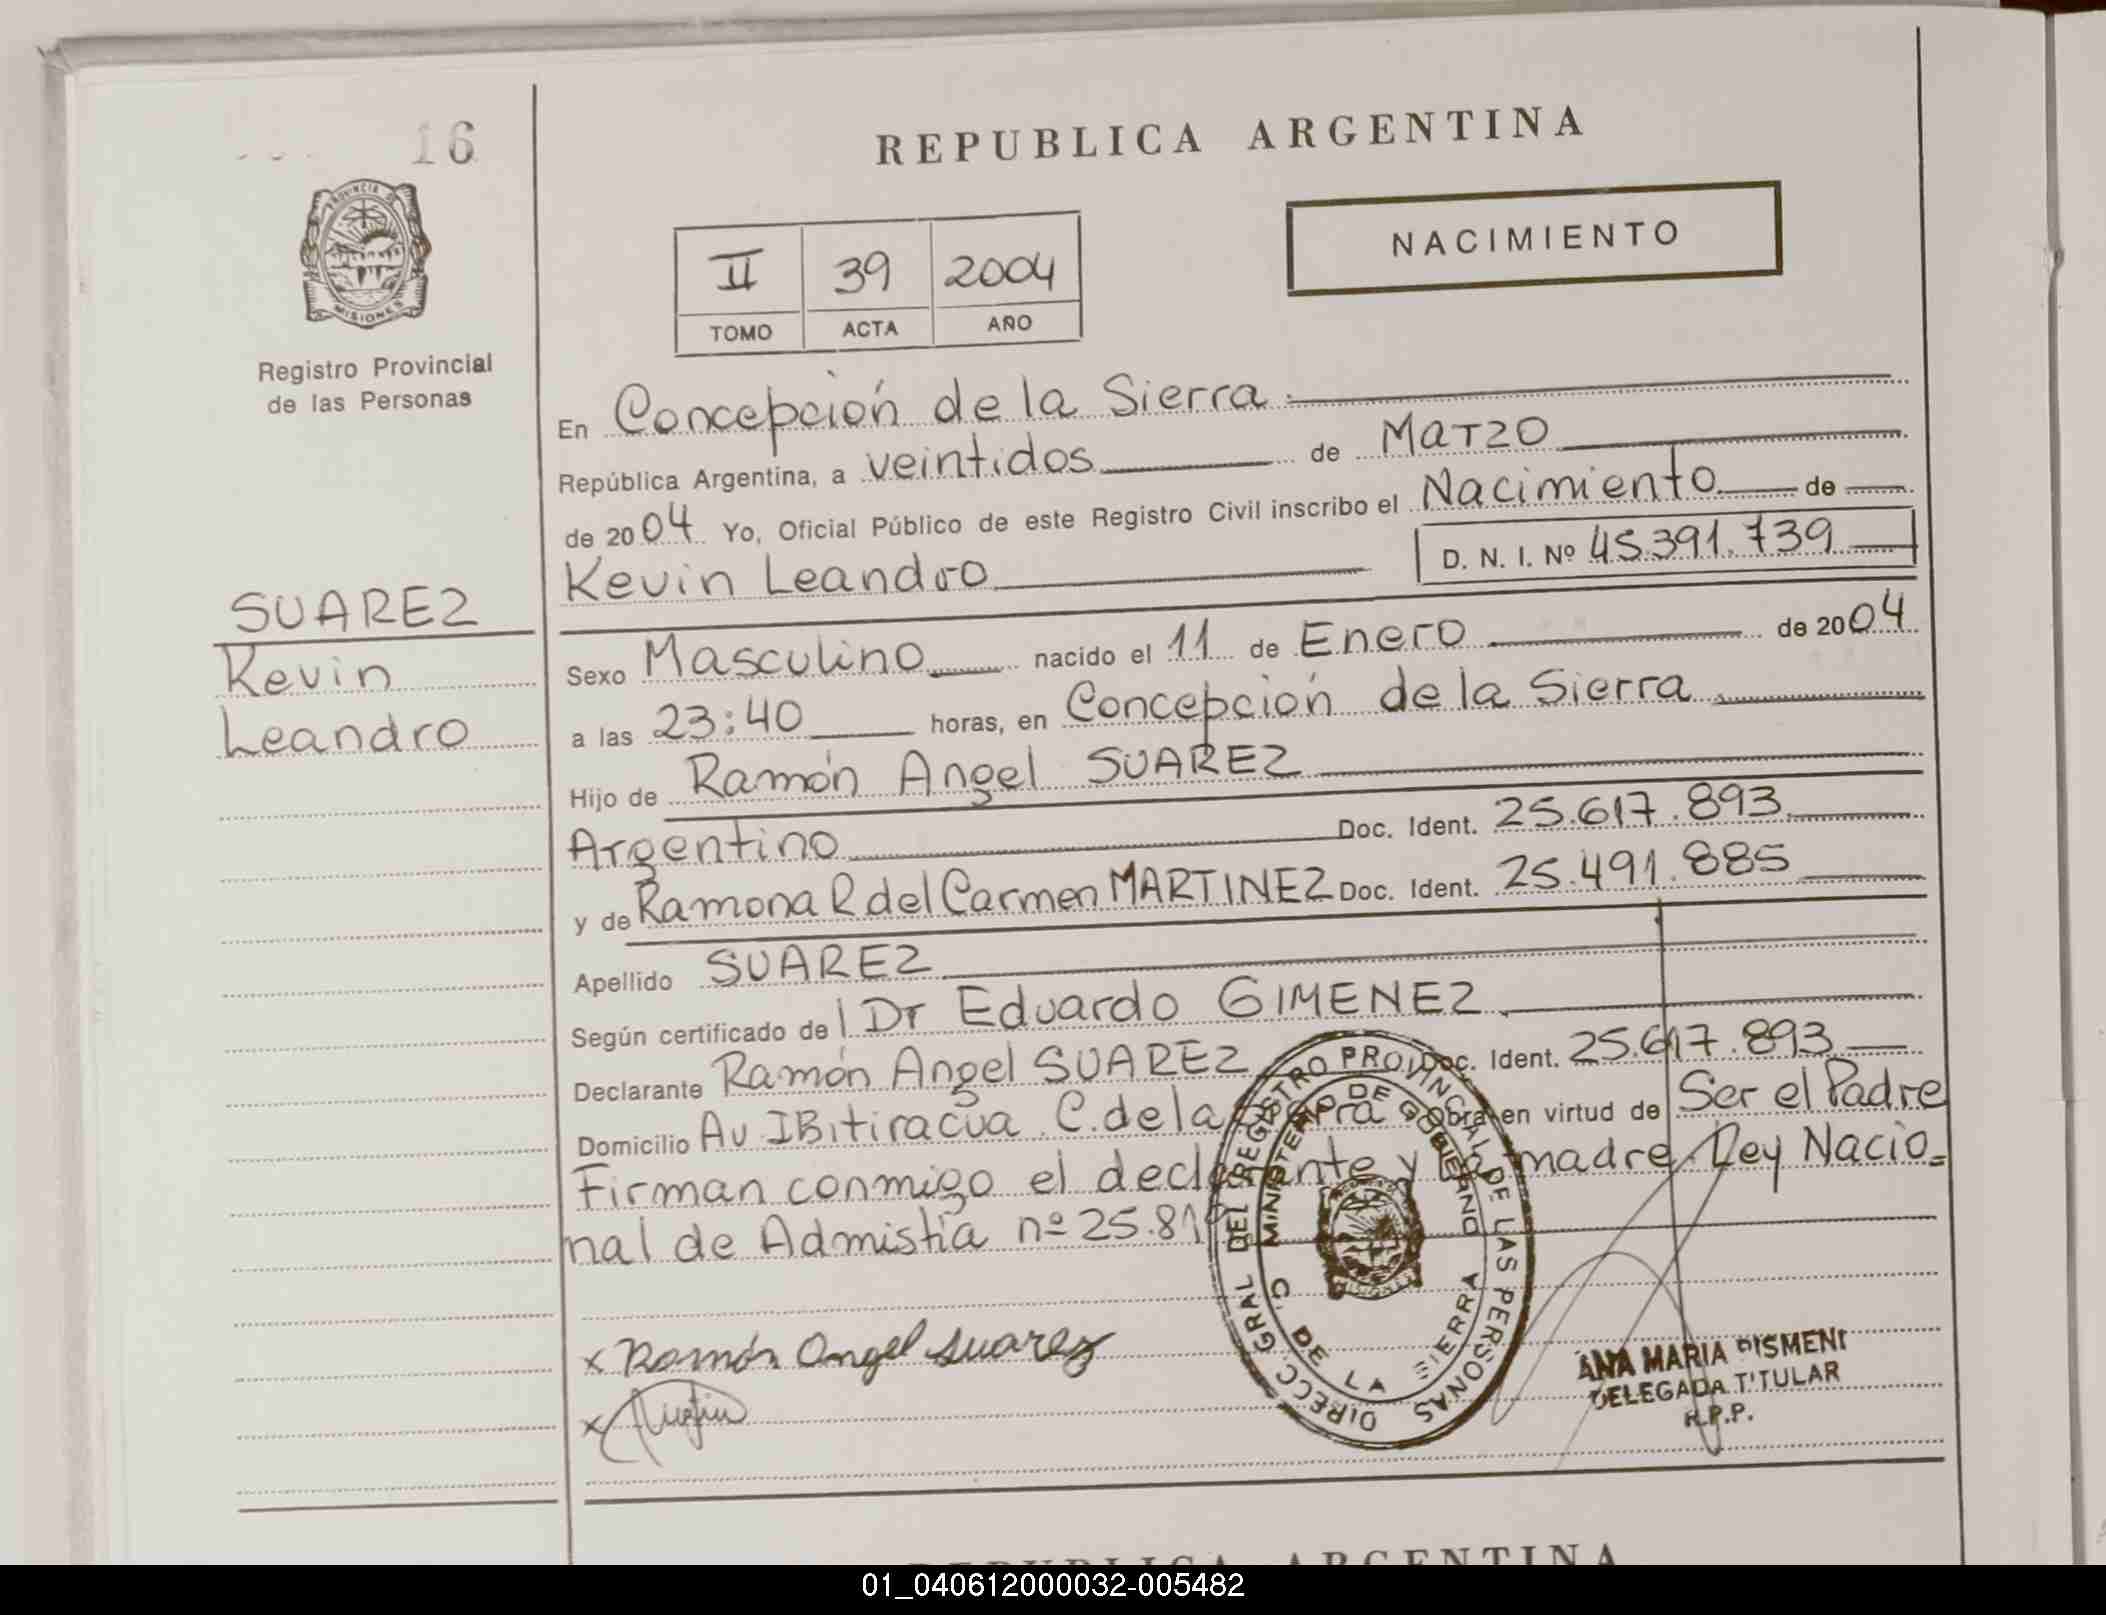 16
REPUBLICA ARGENTINA
PROVINCIA DE
MISIONES
NACIMIENTO
II 39 2004
TOMO ACTA AÑO
Registro Provincial
de las Personas
En Concepción de la Sierra
República Argentina, a veintidos de Marzo
de 2004 Yo, Oficial Público de este Registro Civil inscribo el Nacimiento de
Kevin Leandro D. N. I. Nº 45.391.739
SUAREZ
Kevin
Leandro
Sexo Masculino nacido el 11 de Enero de 2004
a las 23:40 horas, en Concepción de la Sierra
Hijo de Ramón Angel SUAREZ
Argentino Doc. Ident. 25.617.893
y de Ramona R del Carmen MARTINEZ Doc. Ident. 25.491.885
Apellido SUAREZ
Según certificado del Dr Eduardo GIMENEZ
Declarante Ramón Angel SUAREZ Doc. Ident. 25.617.893
Domicilio Av. IBitiracua C. de la Sierra Obra en virtud de Ser el Padre
Firman conmigo el declarante y la madre. Ley Nacio=
nal de Admistia nº 25.81
DIRECC GRAL DEL REGISTRO PROVINCIAL DE LAS PERSONAS
MINISTERIO DE GOBIERNO
C. DE LA SIERRA
x Ramón Angel Suarez
x
ANA MARIA DISMENI
DELEGADA TITULAR
R.P.P.
REPUBLICA ARGENTINA
01_040612000032-005482